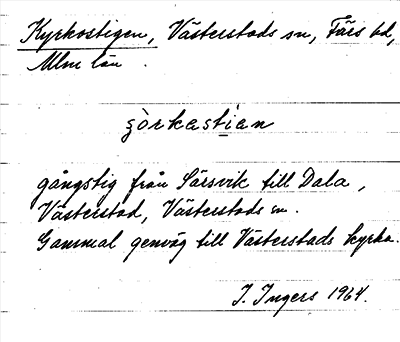 Kyrkostigen, Västerstads sn, Färs hd,
Mlm län.
ʂòrkastian
gångstig från Särsvik till Dala,
Västerstad, Västerstads sn.
Gammal genväg till Västerstads kyrka.
I. Ingers 1964.